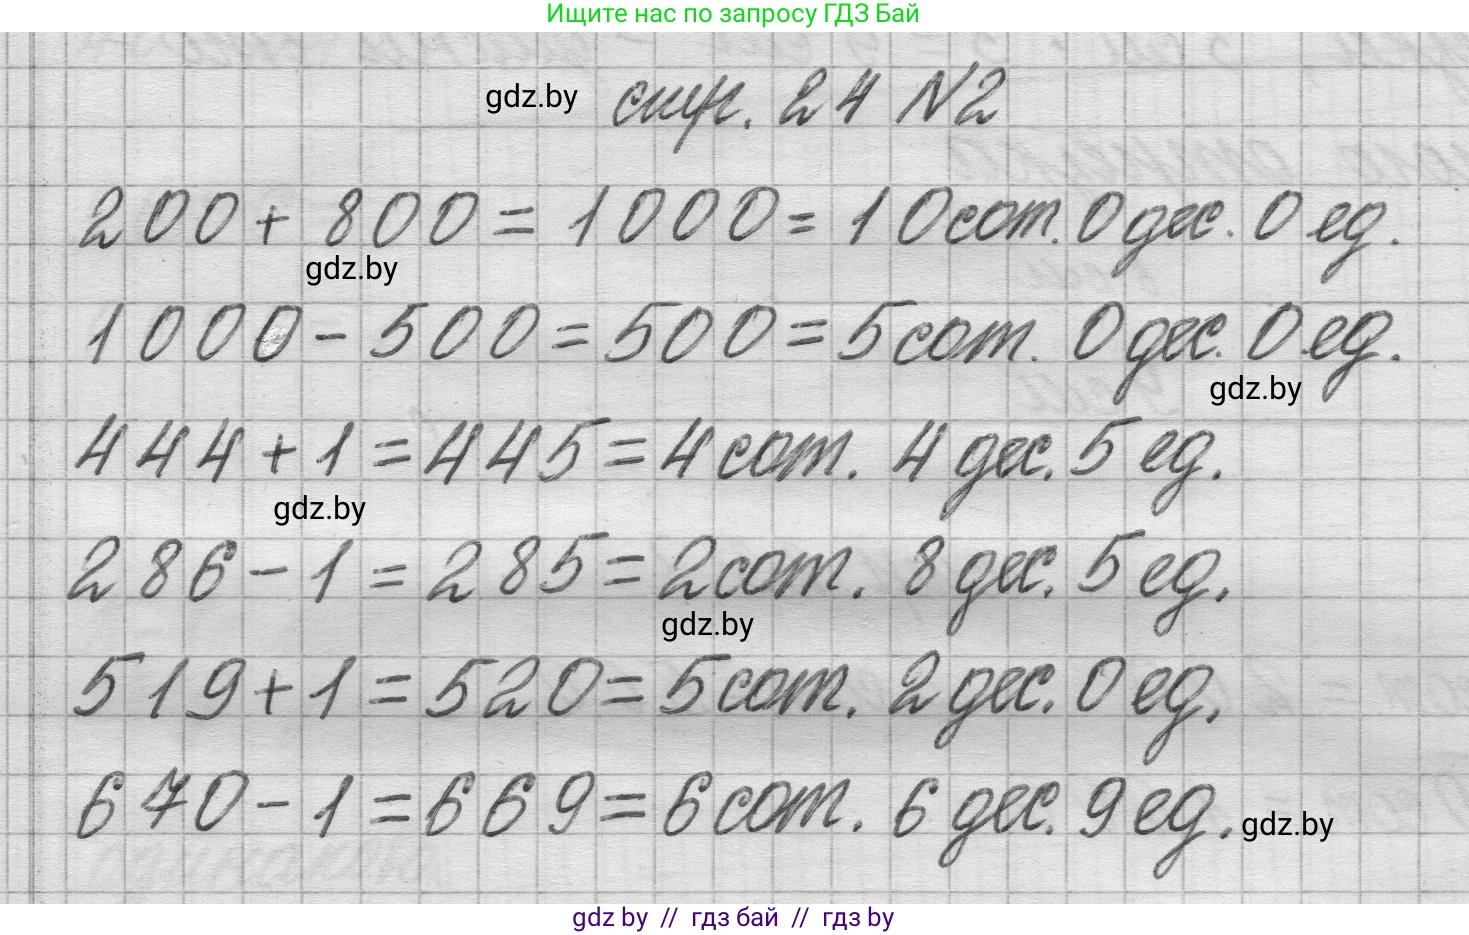 Ищите нас по запросу ГДЗ Бай
gdz.by стр. 24 №2
200 + 800 = 1000 = 10 сот. 0 дес. 0 ед.
gdz.by
1000 - 500 = 500 = 5 сот. 0 дес. 0 ед.
gdz.by
444 + 1 = 445 = 4 сот. 4 дес. 5 ед.
gdz.by
286 - 1 = 285 = 2 сот. 8 дес. 5 ед.
gdz.by
519 + 1 = 520 = 5 сот. 2 дес. 0 ед.
670 - 1 = 669 = 6 сот. 6 дес. 9 ед. gdz.by
gdz by // гдз бай // гдз by